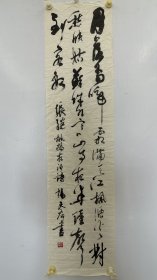 月落烏啼霜滿天江楓漁火對
愁眠姑蘇城外寒山寺夜半鐘聲
到客船 張繼楓橋夜泊詩 書